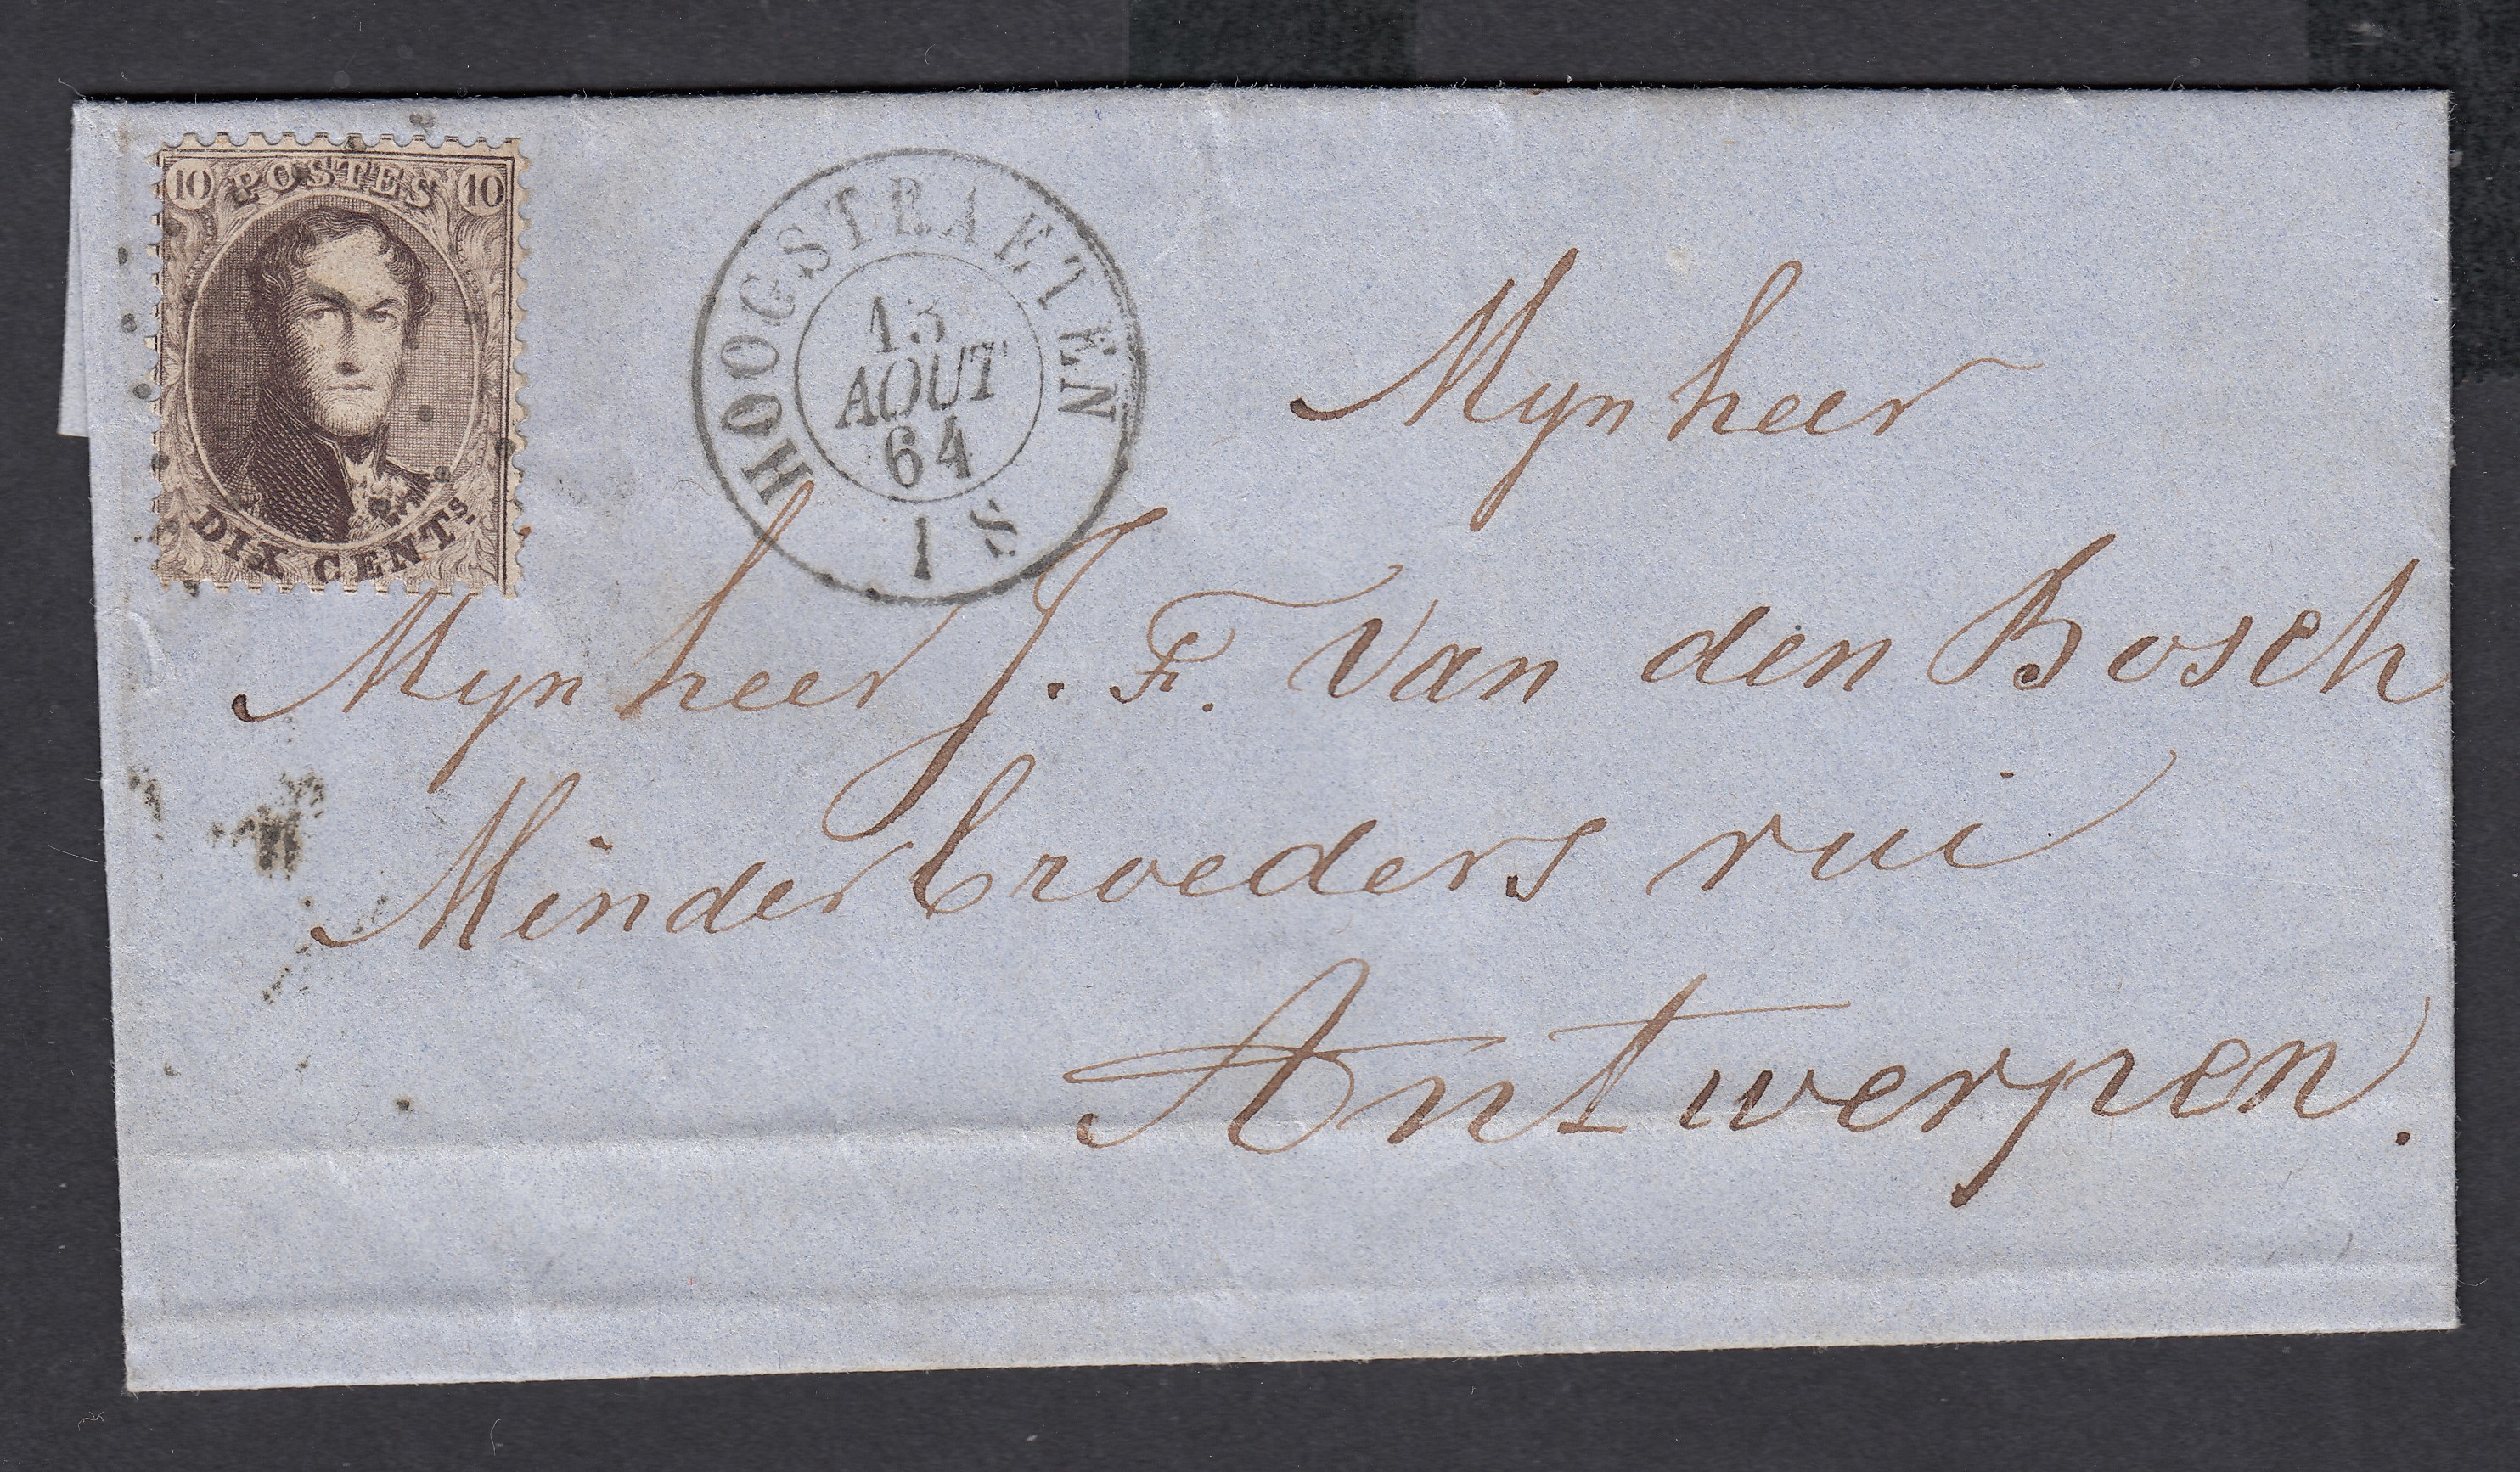 10 POSTES 10
DIX CENTS.
HOOGSTRAETEN
13
AOUT
64
1 S
Mynheer
Mynheer J. F. Van den Bosch
Minderbroeders rui
Antwerpen.